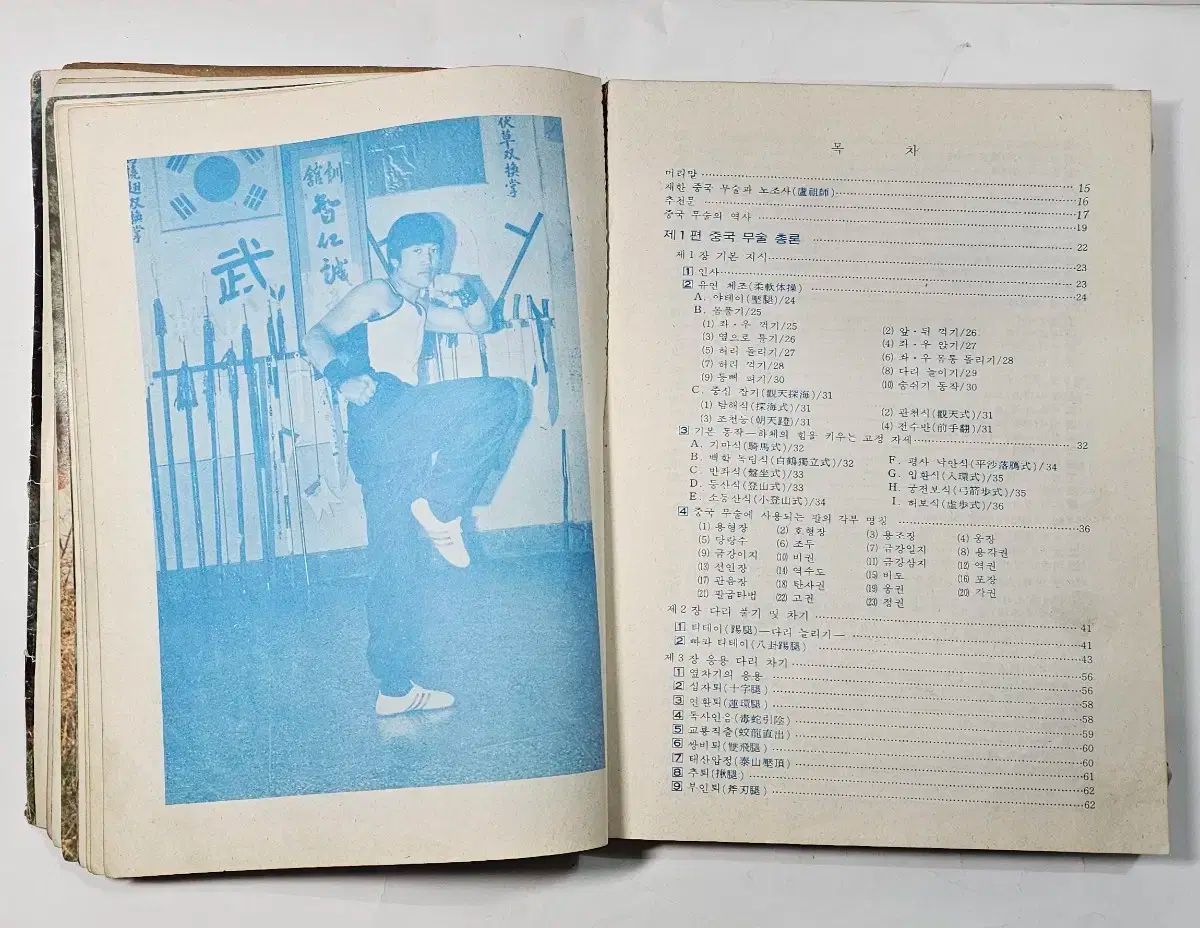 伏草双換掌
双換掌
訓館
智仁誠
武
목 차
머리말 15
재한 중국 무술과 노조사(盧祖師) 16
추천문 17
중국 무술의 역사 19
제1편 중국 무술 총론 22
제1장 기본 지시 23
1 인사 23
2 유연 체조(柔軟体操) 24
A. 야테이(壓腿)/24
B. 몸풀기/25
(1) 좌·우 꺾기/25 (2) 앞·뒤 꺾기/26
(3) 옆으로 틀기/26 (4) 좌·우 앉기/27
(5) 허리 돌리기/27 (6) 좌·우 몸통 돌리기/28
(7) 허리 꺾기/28 (8) 다리 높이기/29
(9) 등뼈 펴기/30 (10) 숨쉬기 동작/30
C. 중심 잡기(觀天探海)/31
(1) 탐해식(探海式)/31 (2) 관천식(觀天式)/31
(3) 조천등(朝天蹬)/31 (4) 전수번(前手翻)/31
3 기본 동작―하체의 힘을 키우는 고정 자세 32
A. 기마식(騎馬式)/32
B. 백학 독립식(白鶴獨立式)/32 F. 평사 낙안식(平沙落鴈式)/34
C. 반좌식(盤坐式)/33 G. 입환식(入環式)/35
D. 등산식(登山式)/33 H. 궁전보식(弓箭步式)/35
E. 소등산식(小登山式)/34 I. 허보식(虛步式)/36
4 중국 무술에 사용되는 팔의 각부 명칭 36
(1) 용형장 (2) 호형장 (3) 용조장 (4) 웅장
(5) 당랑수 (6) 조두 (7) 금강일지 (8) 용각권
(9) 금강이지 (10) 비권 (11) 금강삼지 (12) 역권
(13) 선인장 (14) 역수도 (15) 비도 (16) 포장
(17) 관음장 (18) 탄사권 (19) 웅권 (20) 각권
(21) 팔굽타법 (22) 고권 (23) 정권
제2장 다리 풀기 및 차기 41
1 티테이(踢腿)―다리 늘리기― 41
2 빠꽈 티테이(八卦踢腿) 43
제3장 응용 다리 차기 56
1 옆차기의 응용 56
2 십자퇴(十字腿) 58
3 연환퇴(蓮環腿) 58
4 독사인음(毒蛇引陰) 59
5 교룡직출(蛟龍直出) 60
6 쌍비퇴(雙飛腿) 60
7 태산압정(泰山壓頂) 61
8 추퇴(揪腿) 62
9 부인퇴(斧刃腿) 62